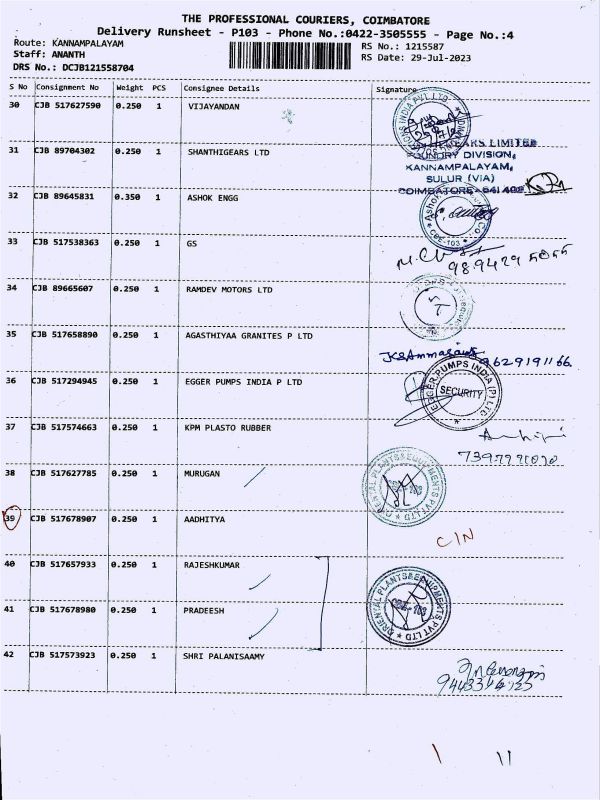 THE PROFESSIONAL COURIERS, COIMBATORE
Delivery Runsheet - P103 - Phone No.:0422-3505555 - Page No.:4
Route: KANNAMPALAYAM
RS No.: 1215587
Staff: ANANTH
RS Date: 29-Jul-2023
DRS No.: DCJB121558704
S No Consignment No Weight PCS Consignee Details Signature
30 CJB 517627590 0.250 1 VIJAYANDAN
31 CJB 89704302 0.250 1 SHANTHIGEARS LTD
GEARS LIMITED
FOUNDRY DIVISION,
KANNAMPALAYAM,
SULUR (VIA)
COIMBATORE - 641 402
32 CJB 89645831 0.350 1 ASHOK ENGG
CBE-103
33 CJB 517538363 0.250 1 GS
34 CJB 89665607 0.250 1 RAMDEV MOTORS LTD
35 CJB 517658890 0.250 1 AGASTHIYAA GRANITES P LTD
9629191166
36 CJB 517294945 0.250 1 EGGER PUMPS INDIA P LTD
EGGER PUMPS INDIA (P) LTD
SECURITY
37 CJB 517574663 0.250 1 KPM PLASTO RUBBER
38 CJB 517627785 0.250 1 MURUGAN
ORIENTAL PLANTS & EQUIPMENTS PVT LTD
39 CJB 517678907 0.250 1 AADHITYA
C/N
40 CJB 517657933 0.250 1 RAJESHKUMAR
41 CJB 517678980 0.250 1 PRADEESH
ORIENTAL PLANTS & EQUIPMENTS PVT LTD
CBE-103
42 CJB 517573923 0.250 1 SHRI PALANISAAMY